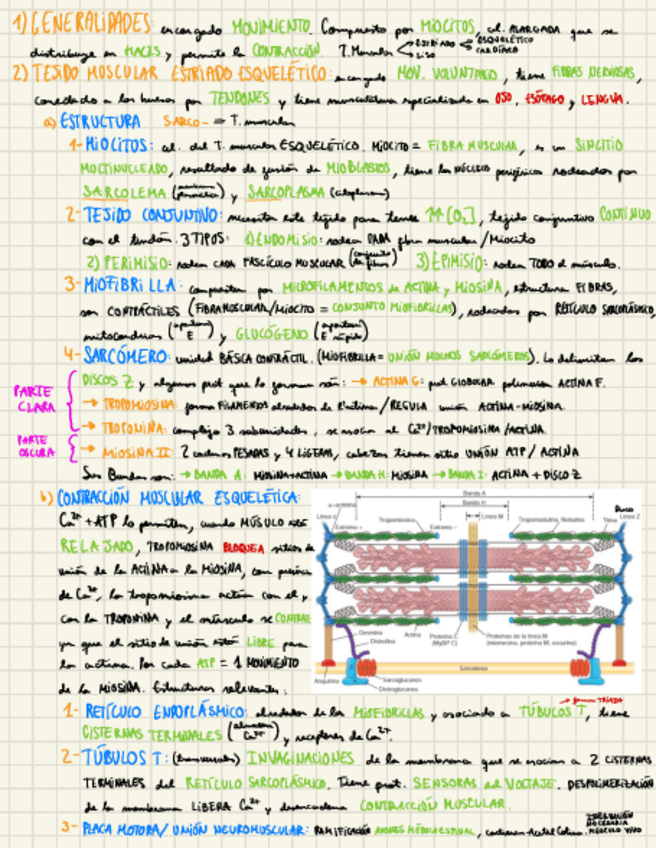 1) GENERALIDADES: encargado MOVIMIENTO. Compuesto por MIOCITOS, cel. ALARGADA que se
distribuye en HACES y permite la CONTRACCIÓN. T. Muscular ESTRIADO ESQUELÉTICO CARDÍACO LISO
2) TEJIDO MUSCULAR ESTRIADO ESQUELÉTICO: encargado MOV. VOLUNTARIO, tiene FIBRAS NERVIOSAS,
conectado a los huesos por TENDONES y tiene musculatura especializada en OJO, ESÓFAGO y LENGUA.
a) ESTRUCTURA SARCO- = T. muscular
1- MIOCITOS: cel. del T. muscular ESQUELÉTICO. MIOCITO = FIBRA MUSCULAR, es un SINCITIO
MULTINUCLEADO, resultado de fusión de MIOBLASTOS, tiene los NÚCLEOS periféricos rodeados por
SARCOLEMA (membrana plasmática) y SARCOPLASMA (citoplasma)
2- TEJIDO CONJUNTIVO: necesita este tejido para tener [O₂], tejido conjuntivo CONTINUO
con el tendón. 3 TIPOS: 1) ENDOMISIO: rodea CADA fibra muscular/Miocito
2) PERIMISIO: rodea CADA FASCÍCULO MUSCULAR (conjunto de fibras) 3) EPIMISIO: rodea TODO el músculo.
3- MIOFIBRILLA: compuestas por MICROFILAMENTOS de ACTINA y MIOSINA, estructura FIBRAS,
son CONTRÁCTILES (FIBRA MUSCULAR/MIOCITO = CONJUNTO MIOFIBRILLAS), rodeadas por RETÍCULO SARCOPLÁSMICO,
mitocondrias (aportan E) y GLUCÓGENO (aportan E rápida)
4- SARCÓMERO: unidad BÁSICA CONTRÁCTIL. (MIOFIBRILLA = UNIÓN MUCHOS SARCÓMEROS). Lo delimitan los
DISCOS Z y algunas prot que lo forman son: → ACTINA G: prot. GLOBULAR polimeriza ACTINA F.
PARTE CLARA
→ TROPOMIOSINA: forma FILAMENTOS alrededor de l'actina/REGULA unión ACTINA-MIOSINA.
→ TROPONINA: complejo 3 subunidades, se asocian al Ca²⁺/TROPOMIOSINA/ACTINA.
PARTE OSCURA
→ MIOSINA II: 2 cadenas PESADAS y 4 LIGERAS, cabezas tienen sitio UNIÓN ATP/ACTINA
Sus Bandas son: → BANDA A: MIOSINA+ACTINA → BANDA H: MIOSINA → BANDA I: ACTINA + DISCO Z
b) CONTRACCIÓN MUSCULAR ESQUELÉTICA:
Ca²⁺ + ATP lo permiten, cuando MÚSULO está
RELAJADO, TROPOMIOSINA BLOQUEA sitios de
unión de la ACTINA a la MIOSINA, con presencia
de Ca²⁺, la tropomiosina actúa con el y
con la TROPONINA y el músculo se CONTRAE
ya que el sitio de unión está LIBRE para
la actina. Por cada ATP = 1 MOVIMIENTO
de la MIOSINA. Estructuras relevantes:
Banda A
Banda H
Línea M
Disco
Línea Z
Tropomodulina, Nebulina
Titina
Desmina
Distrofina
Actina
Proteína C (MyBP C)
Proteínas de la línea M (miomesina, proteína M, escurina)
Anquirina
Sarcolema
Sarcoglucanos
Distroglucanos
1- RETÍCULO ENDOPLÁSMICO: alrededor de las MIOFIBRILLAS y asociado a TÚBULOS T, tiene → TRIADA
CISTERNAS TERMINALES (almacenan Ca²⁺) y receptores de Ca²⁺.
2- TÚBULOS T: (transversales) INVAGINACIONES de la membrana que se asocian a 2 CISTERNAS
TERMINALES del RETÍCULO SARCOPLÁSMICO. Tiene prot. SENSORAS del VOLTAJE. DESPOLIMERIZACIÓN
de la membrana LIBERA Ca²⁺ y desencadena CONTRACCIÓN MUSCULAR.
3- PLACA MOTORA/UNIÓN NEUROMUSCULAR: RAMIFICACIÓN AXONES MÉDULA ESPINAL, contienen Acetil Colina. INERVACIÓN NECESARIA MÚSCULO VIVO